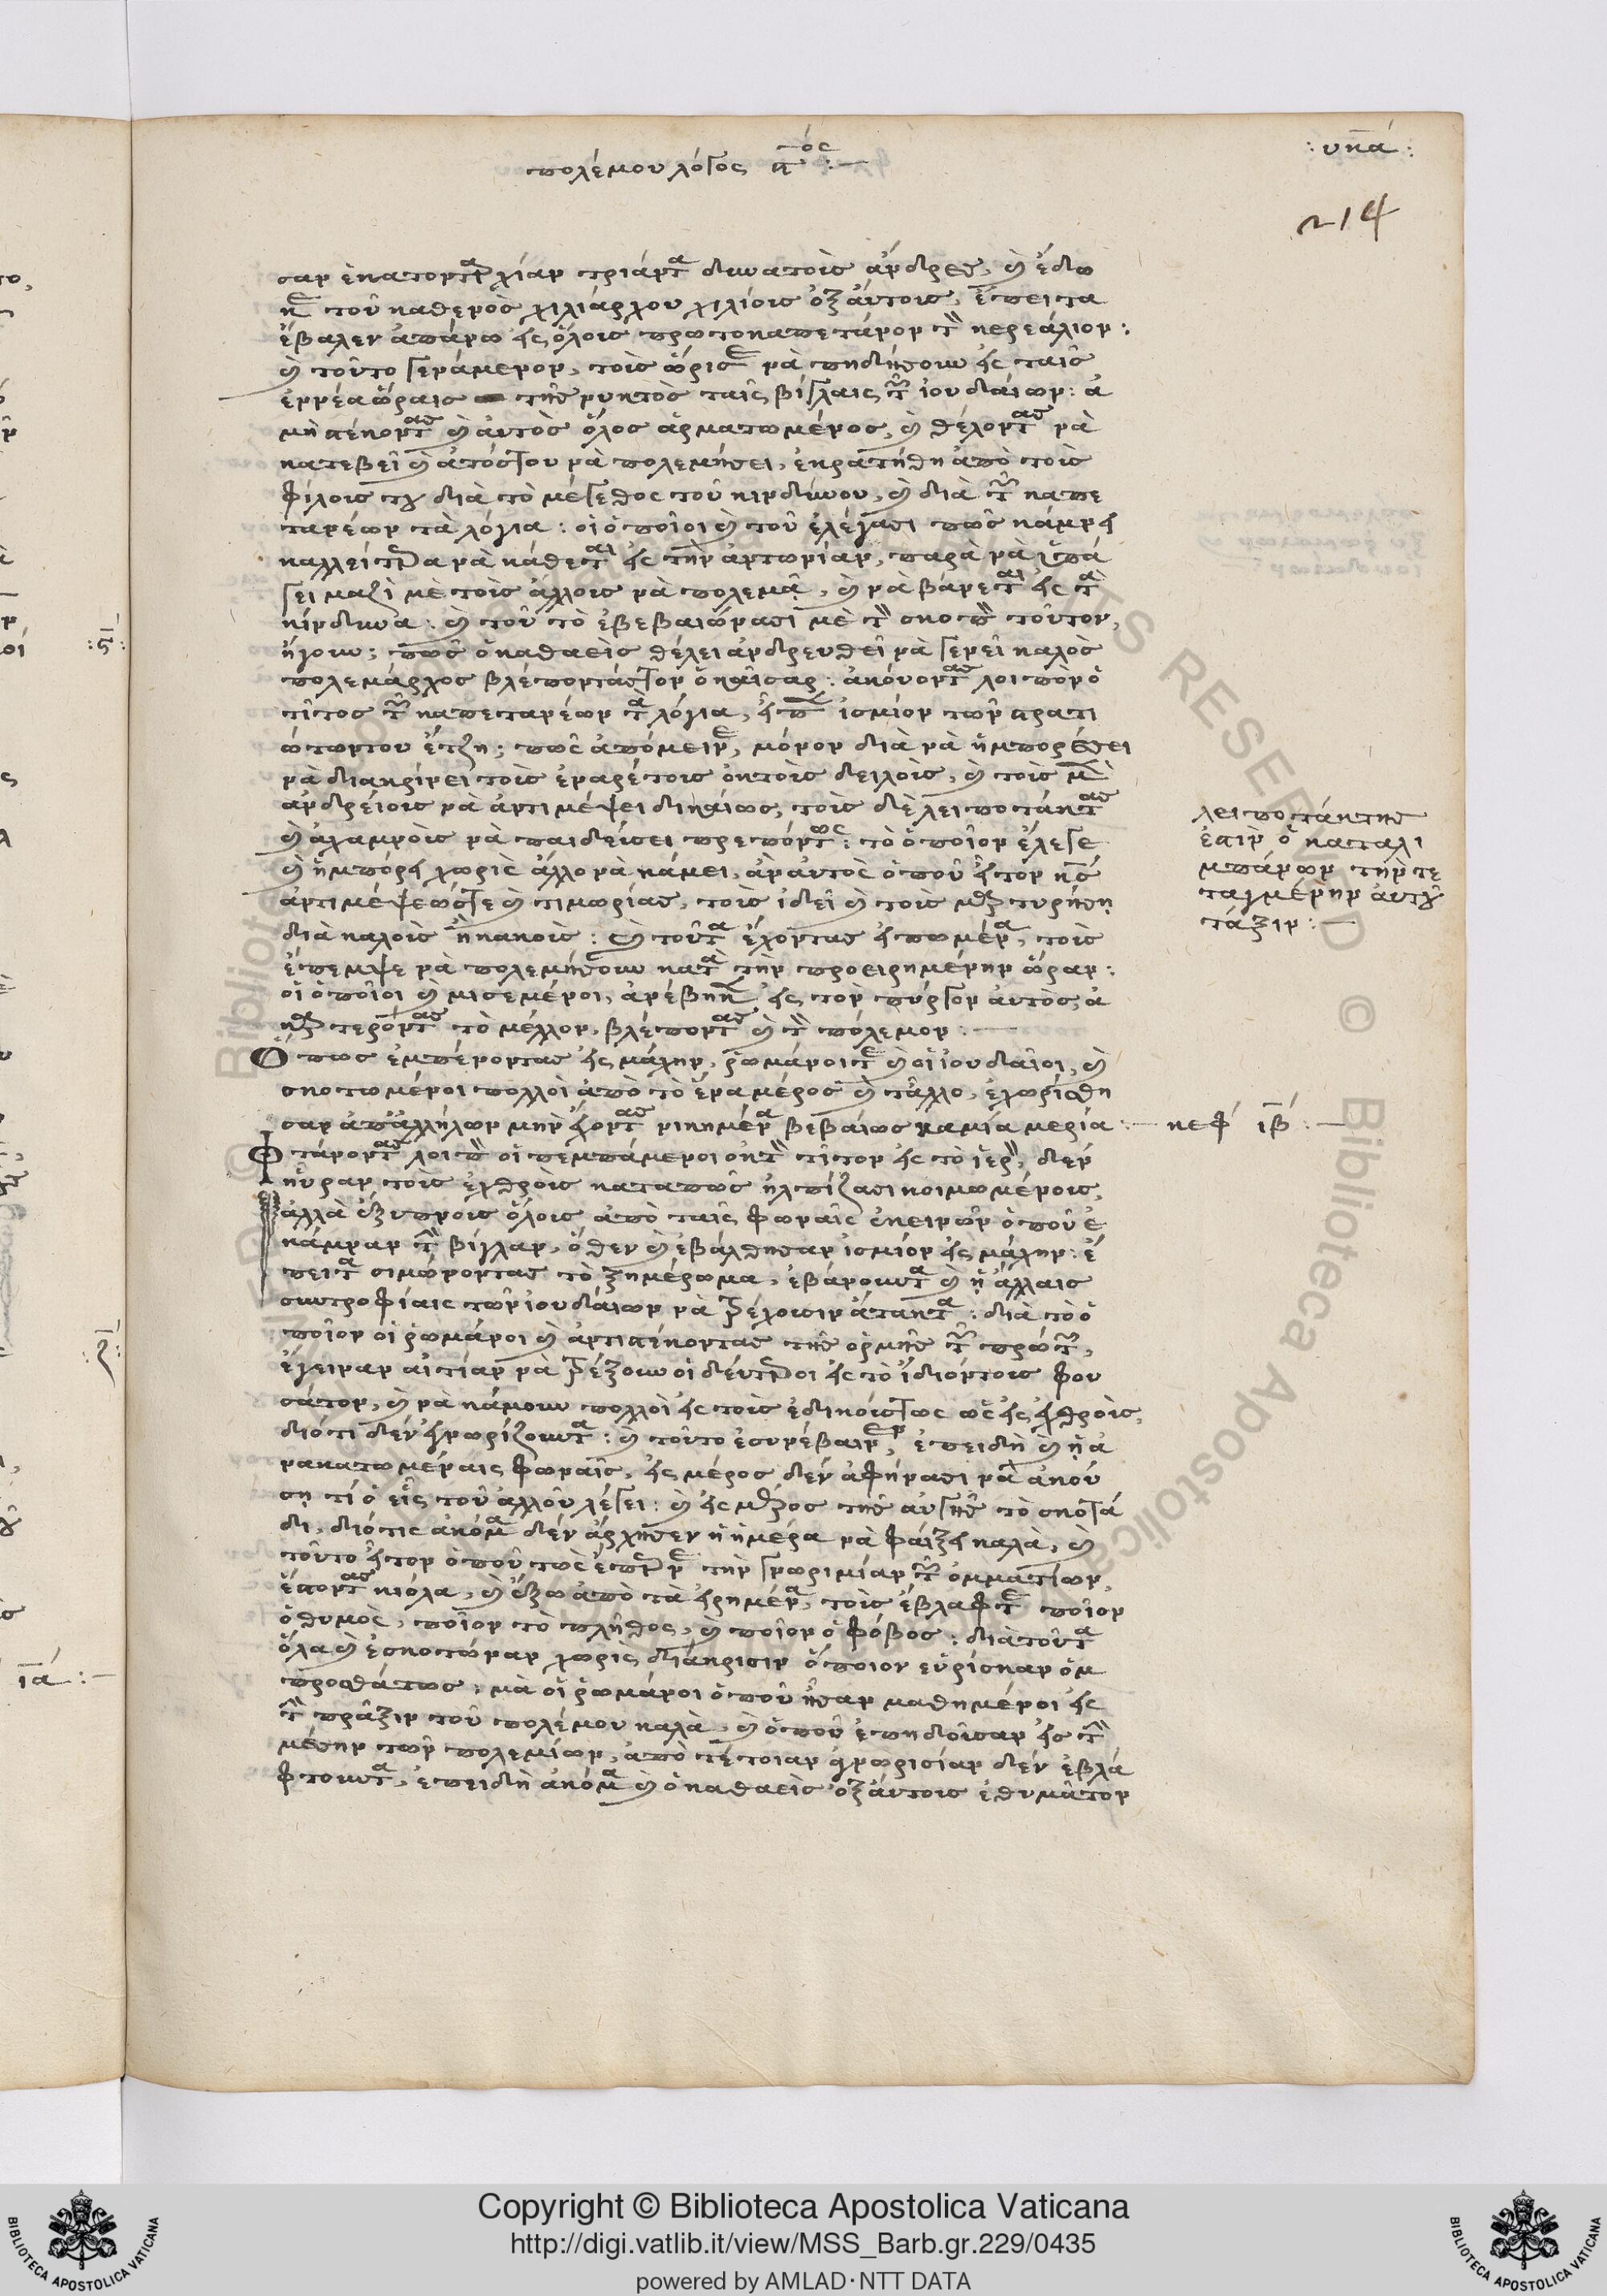 πολέμου λόγος
:υκα:
214
σαν ἑκατονταρχίαν τριάντα δυνατοὺς ἄνδρες, καὶ ἔδω
κε τοῦ καθενὸς χιλιάρχου χιλίους ὀξαύτους, ἔπειτα
ἔβαλεν ἀπάνω εἰς ὅλους πρωτοκαπετάνον τὸν κερεάλιον:
καὶ τοῦτο γενάμενον, τοὺς ὥρισε νὰ πηδήσουν εἰς ταῖς
ἐννέα ὥραις τῆς νυκτὸς ταῖς βίγλαις τῶν ἰουδαίων: ἀ
μὴ στέκοντας καὶ αὐτὸς ὅλος ἁρματωμένος, καὶ θέλοντας νὰ
κατεβεῖ καὶ ἀτόστου νὰ πολεμήσει, ἐκρατήθη ἀπὸ τοὺς
φίλους του διὰ τὸ μέγεθος τοῦ κινδύνου, καὶ διὰ τῶν καπε
τανέων τὰ λόγια: οἱ ὁποῖοι καὶ τοῦ ἐλέγασι πῶς κάμνει
καλλείτερα νὰ κάθεται εἰς τὴν ἀντωνίαν, παρὰ νὰ ὑπά
γει μαζὶ μὲ τοὺς ἄλλους νὰ πολεμᾶ, καὶ νὰ βάνεται εἰς τὰ
κίνδυνα: καὶ τοῦ τὸ ἐβεβαιώνασι μὲ τὸν σκοπὸν τοῦτον,
ἤγουν; πῶς ὁ καθαεὶς θέλει ἀνδρευθεῖ νὰ γενεῖ καλὸς
πολεμάρχος βλέποντάς τον ὁ καῖσαρ: ἀκούοντας λοιπὸν ὁ
τίτος τῶν καπετανέων τὰ λόγια, εἶπεν ἰσμίον τῶν στρατι
ώτων του ἔτζη; πῶς ἀπόμεινε, μόνον διὰ νὰ ἠμπορέσει
νὰ διακρίνει τοὺς ἐναρέτους ἐκ τοὺς δειλοὺς, καὶ τοὺς μὲν
ἀνδρείους νὰ ἀντιμέψει δικαίως, τοὺς δὲ λειποτάκτας
καὶ ἀχαμνοὺς νὰ παιδεύσει πρεπόντως: τὸ ὁποῖον ἔλεγε
καὶ ἠμπόρει χωρὶς ἄλλο νὰ κάμει, ἂν αὐτὸς ὁποῦ εἶτον
ἀντιμέψεώς τε καὶ τιμωρίας, τοὺς ἰδεῖ καὶ τοὺς μαρτυρήση
διὰ καλοὺς ἢ κακούς: καὶ τοῦτα ἔχοντας εἰπωμένα, τοὺς
ἔπεμψε νὰ πολεμήσουν κατὰ τὴν προειρημένην ὥραν:
οἱ ὁποῖοι καὶ μισεμένοι, ἀνέβηκεν εἰς τὸν πύργον αὐτὸς, ἀ
καρτερόντας τὸ μέλλον, βλέποντας καὶ τὸν πόλεμον
Ὅπως ἐμπένοντας εἰς μάχην, ῥωμάνοι τε καὶ οἱ ἰουδαῖοι, καὶ
σκοτωμένοι πολλοὶ ἀπὸ τὸ ἕνα μέρος καὶ τἄλλο, ἐχωρίσθη
σαν ἀπ' ἀλλήλων μὴν εἰόντας νικημένα βεβαίως καμία μερία:— κεφ ιβ:—
Φτάνοντας λοιπὸν οἱ πεμπάμενοι ἐκ τὸν τίτον εἰς τὸ ἱερὸν, δὲν
ηὗραν τοὺς ἐχθροὺς καταπῶς ἠλπίζασι κοιμωμένους,
ἀλλὰ ἐξύπνους ὅλους ἀπὸ ταῖς φωναῖς ἐκεινῶν ὁποῦ ἐ
κάμναν τὴν βίγλαν, ὅθεν καὶ ἐβάλθησαν ἰσμίον εἰς μάχην: ἔ
πειτα σιμώνοντας τὸ ξημέρωμα, ἐβάνουντα καὶ ᾑ ἄλλαις
συντροφίαις τῶν ἰουδαίων νὰ τρέχουσιν ἄτακτα: διὰ τὸ ὁ
ποῖον οἱ ῥωμάνοι καὶ ἀντιστέκοντας τῆς ὁρμῆς τῶν πρώτων,
ἔγειραν αἰτίαν νὰ τρέξουν οἱ δεύτεροι εἰς τὸ ἴδιόντους φου
σάτον, καὶ νὰ κάμουν πολλοὶ εἰς τοὺς ἐδικούστως ὡς εἰς ἐχθροὺς,
διότι δὲν ἐγνωρίζουντα: καὶ τοῦτο ἐσυνέβαινεν, ἐπειδὴ καὶ ᾑ ἀ
νακατωμέναις φωναῖς, εἰς μέρος δὲν ἀφήνασι νὰ ἀκού
ση τί ὁ εἷς τοῦ ἀλλοῦ λέγει: καὶ εἰς μέρος τῆς αὐγῆς τὸ σκοτά
δι, διότις ἀκόμα δὲν ἄρχησεν ἡ ἡμέρα νὰ φαίξει καλὰ, καὶ
τοῦτο εἶτον ὁποῦ τὼς ἔπερνε τὴν γνωριμίαν τῶν ὀμματίων,
ἔστοντας κιόλα, καὶ ἔξω ἀπὸ τὰ εἰρημένα, τοὺς ἔβλαφτε ποῖον
ὁ θυμὸς, ποῖον τὸ πλῆθος, καὶ ποῖον ὁ φόβος: διὰ τοῦτα
ὅλα καὶ ἐσκοτώναν χωρὶς διάκρισιν ὅποιον εὑρίσκαν ὀμ
προσθάτως: μὰ οἱ ῥωμάνοι ὁποῦ ἦσαν μαθημένοι εἰς
τὴν πρᾶξιν τοῦ πολέμου καλὰ, καὶ ὁποῦ ἐπηδοῦσαν εἰς τὴν
μέσην τῶν πολεμίων, ἀπὸ τέτοιαν γνωρισίαν δὲν ἐβλά
φτουντα, ἐπειδὴ ἀκόμα καὶ ὁ καθαεὶς ὀξαύτους ἐθυμᾶτον
λειποτάκτης
ἐστὶν ὁ καταλι
μπάνων τὴν τε
ταγμένην αὐτοῦ
τάξιν:—
ια:—
Copyright © Biblioteca Apostolica Vaticana
http://digi.vatlib.it/view/MSS_Barb.gr.229/0435
powered by AMLAD·NTT DATA
BIBLIOTECA APOSTOLICA VATICANA
BIBLIOTECA APOSTOLICA VATICANA